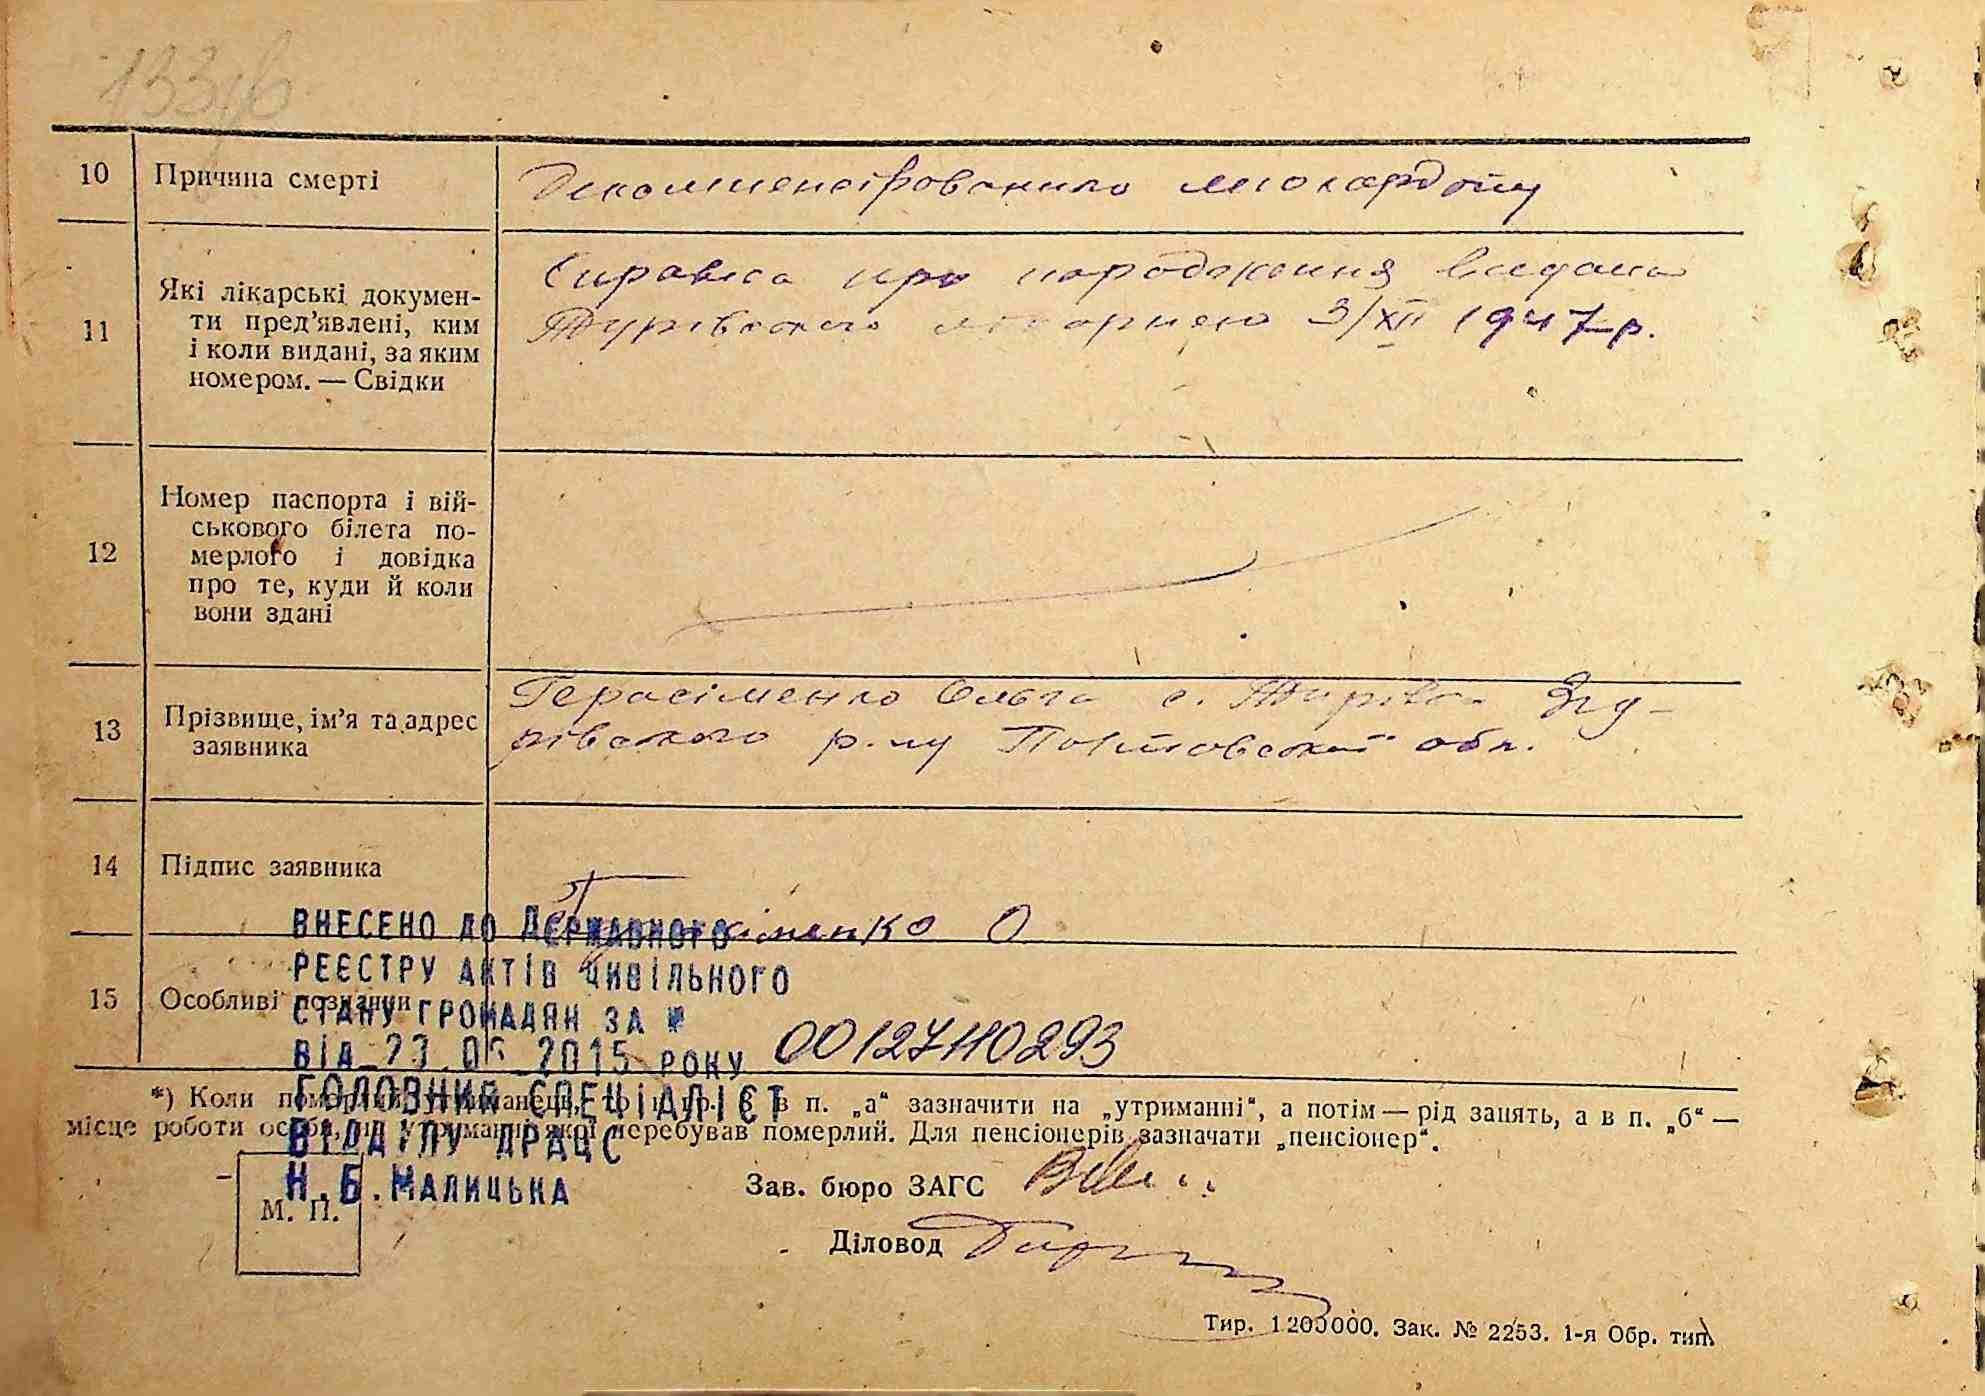 133
10 Причина смерті
Декомпенсірованого міокардіту
11 Які лікарські докумен-
ти пред'явлені, ким
і коли видані, за яким
номером. — Свідки
Справка про народження видана
Турівского лікарнею 3/XII 1947 р.
12 Номер паспорта і вій-
ськового білета по-
мерлого і довідка
про те, куди й коли
вони здані
13 Прізвище, ім'я та адрес
заявника
Герасіменко Ольга с. Турівка Згу-
рівского р-ну Полтовської обл.
14 Підпис заявника
О
15 Особливі позначки
ВНЕСЕНО ДО ДЕРЖАВНОГО
РЕЄСТРУ АКТІВ ЦИВІЛЬНОГО
СТАНУ ГРОМАДЯН ЗА №
ВІД 23.06 2015 РОКУ 00127110293
ГОЛОВНИЙ СПЕЦІАЛІСТ
ВІДДІЛУ ДРАЦС
Н.Б.МАЛИЦЬКА
*) Коли в п. „а“ зазначити на „утриманні“, а потім — рід занять, а в п. „б“ —
місце роботи особи, на утриманні якої перебував померлий. Для пенсіонерів зазначати „пенсіонер“.
М. П.
Зав. бюро ЗАГС
Діловод
Тир. 1200000. Зак. № 2253. 1-я Обр. тип.